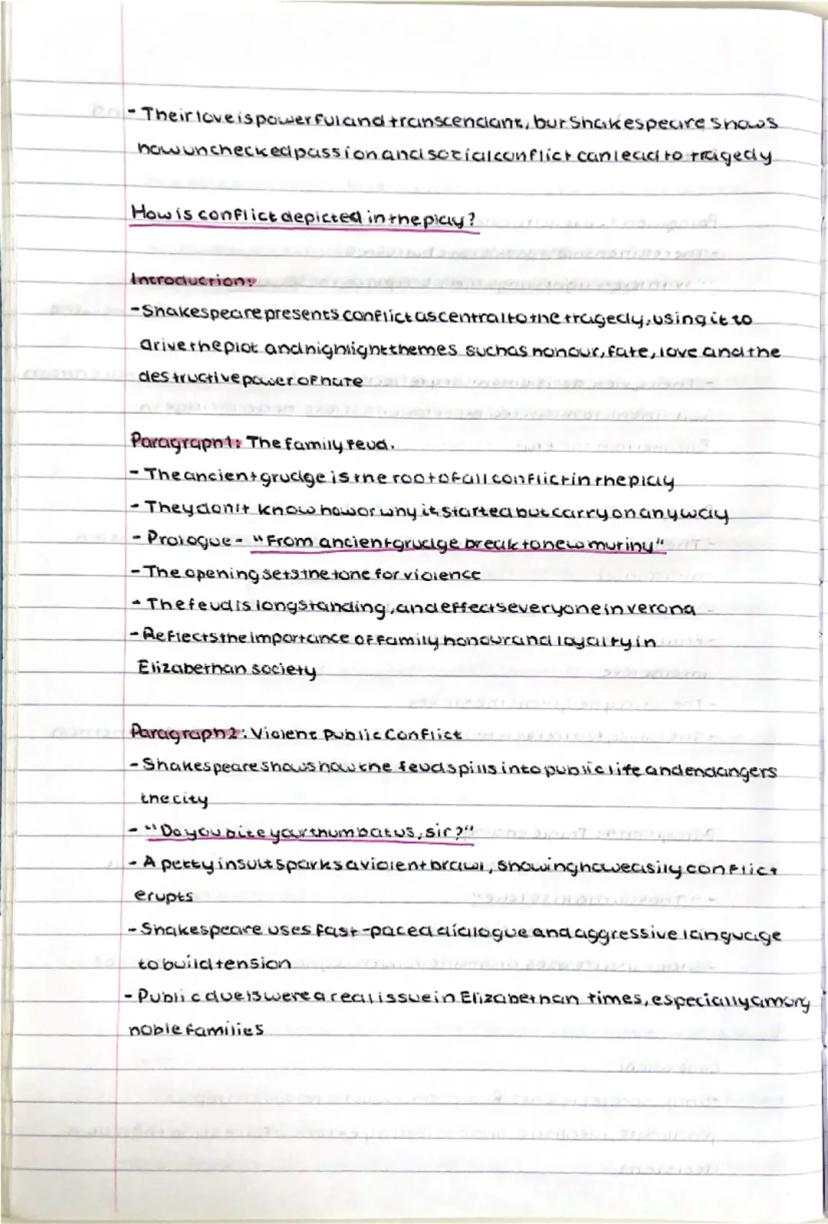 - Their love is powerful and transcendant, but Shakespeare shows
how unchecked passion and social conflict can lead to tragedy
How is conflict depicted in the play?
Introduction:
- Shakespeare presents conflict as central to the tragedy, using it to
drive the plot and highlight themes such as honour, fate, love and the
destructive power of hate
Paragraph 1: The family feud.
- The ancient grudge is the root of all conflict in the play
- They don't know how or why it started but carry on anyway
- Prologue - "From ancient grudge break to new mutiny"
- The opening sets the tone for violence
- The feud is longstanding, and effects everyone in verona
- Reflects the importance of family honour and loyalty in
Elizabethan society
Paragraph 2: Violent Public Conflict
- Shakespeare shows how the feud spills into public life and endangers
the city
- "Do you bite your thumb at us, sir?"
- A petty insult sparks a violent brawl, showing how easily conflict
erupts
- Shakespeare uses fast-paced dialogue and aggressive language
to build tension
- Public duels were a real issue in Elizabethan times, especially among
noble families